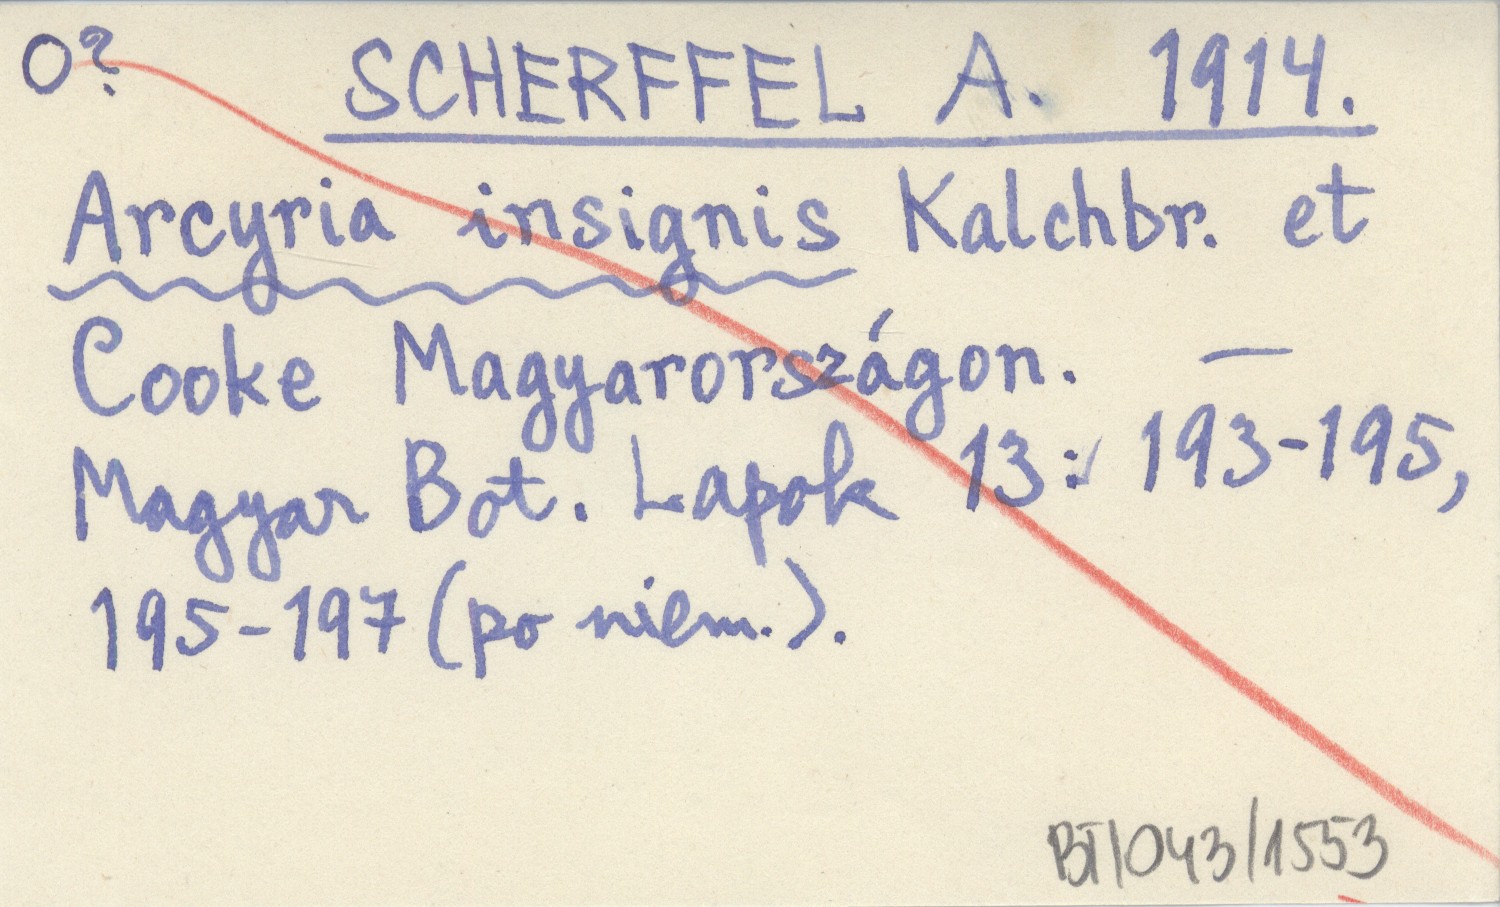 O? SCHERFFEL A. 1914.
Arcyria insignis Kalchbr. et
Cooke Magyarországon. —
Magyar Bot. Lapok 13: 193-195,
195-197 (po niem.).
BT/043/1553